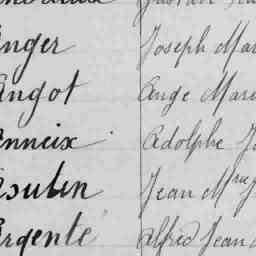 Anger Joseph Mar
Angot Ange Mari
Anneix Adolphe J
Asulin Jean Mrie J
Argenté Alfred Jean